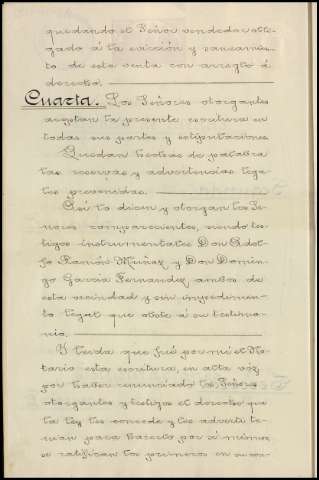 quedando el Señor vendedor obli-
gado á la evicción y saneamien-
to de esta venta con arreglo á
derecho.
Cuarta. Los Señores otorgantes
aceptan la presente escritura en
todas sus partes y estipulaciones.
Quedan hechas de palabra
las reservas y advertencias lega-
les prevenidas.
Así lo dicen y otorgan los Se-
ñores comparecientes, siendo tes-
tigos instrumentales Don Adol-
fo Ramón Muñoz y Don Domin-
go García Fernandez ambos de
esta vecindad y sin impedimen-
to legal que obste á su testimo-
nio.
Y leida que fué por mí el No-
tario esta escritura, en alta voz,
por haber renunciado los Señores
otorgantes y testigos el derecho que
la ley les concede y les advertí te-
nían para hacerlo por sí mismos
se ratifican los primeros en su con-